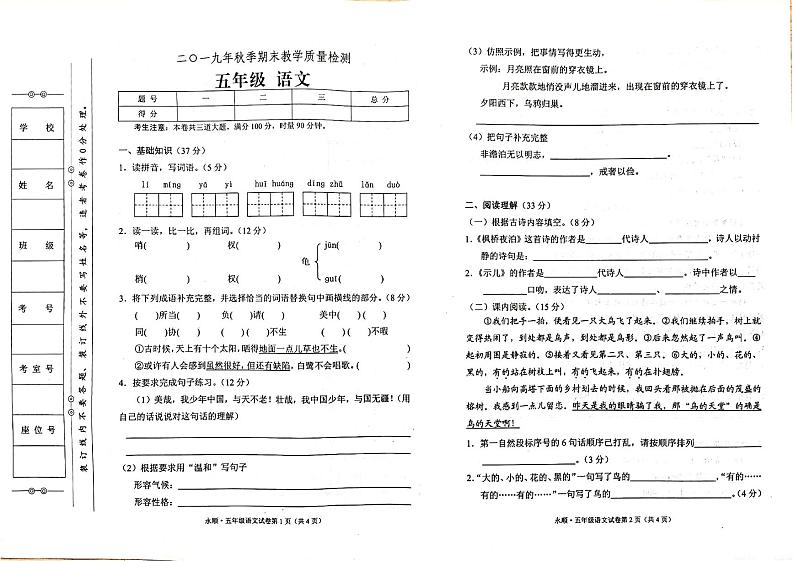 学 校
姓 名
班 级
考 号
考 室 号
座 位 号
装 订 线 内 不 要 答 题 ， 装 订 线 外 不 要 写 姓 名 等 ， 违 者 考 卷 作 0 分 处 理 。
二〇一九年秋季期末教学质量检测
五年级 语文
题 号 一 二 三 总 分
得 分
考生注意：本卷共三道大题，满分 100 分，时量 90 分钟。
一、基础知识（37 分）
1．读拼音，写词语。（5 分）
lì míng yā yì huī huáng dīng zhǔ lǎn duò
2．读一读，比一比，再组词。（12 分）
哨( ) 权( ) jūn( )
龟
梢( ) 杈( ) guī( )
3．将下列成语补充完整，并选择恰当的词语替换句中画横线的部分。（8 分）
( )所当( ) 负( )请( ) 美中( )( )
同( )协( ) ( )( )不生 ( )( )不暇
①古时候，天上有十个太阳，晒得地面一点儿草也不生。( )
②或许有人会感到虽然很好，但还有缺陷，白鹭不会唱歌。( )
4．按要求完成句子练习。（12 分）
（1）美哉，我少年中国，与天不老！壮哉，我中国少年，与国无疆！（用
自己的话说说对这句话的理解）
（2）根据要求用“温和”写句子
形容气候：
形容性格：
永顺・五年级语文试卷第 1 页（共 4 页）
（3）仿照示例，把事情写得更生动，
示例：月亮照在窗前的穿衣镜上。
月亮款款地悄没声儿地溜进来，出现在窗前的穿衣镜上了。
夕阳西下，乌鸦归巢。
（4）把句子补充完整
非澹泊无以明志，。
，戒奢以俭。
二、阅读理解（33 分）
（一）根据古诗内容填空。（8 分）
1．《枫桥夜泊》这首诗的作者是代诗人，诗人以动衬
静的诗句是：。
2．《示儿》的作者是代诗人。诗中作者以
口吻，表达了诗人、之情。
（二）课内阅读。（15 分）
①我们把手一拍，便看见一只大鸟飞了起来。②我们继续拍手，树上就
变得热闹了，到处都是鸟声，到处都是鸟影。③后来忽然起了一声鸟叫。④
起初周围是静寂的。⑤接着又看见第二只、第三只。⑥大的，小的、花的、
黑的，有的站在树枝上叫，有的飞起来，有的在扑翅膀。
当小船向高塔下面的乡村划去的时候，我回头看那被抛在后面的茂盛的
榕树。我感到一点儿留恋。昨天是我的眼睛骗了我，那“鸟的天堂”的确是
鸟的天堂啊！
1．第一自然段标序号的 6 句话顺序已打乱，请按顺序排列
。（3 分）
2．“大的、小的、花的、黑的”一句写了鸟的，“有的……
有的……有的……”一句写了鸟的。（4 分）
永顺・五年级语文试卷第 2 页（共 4 页）